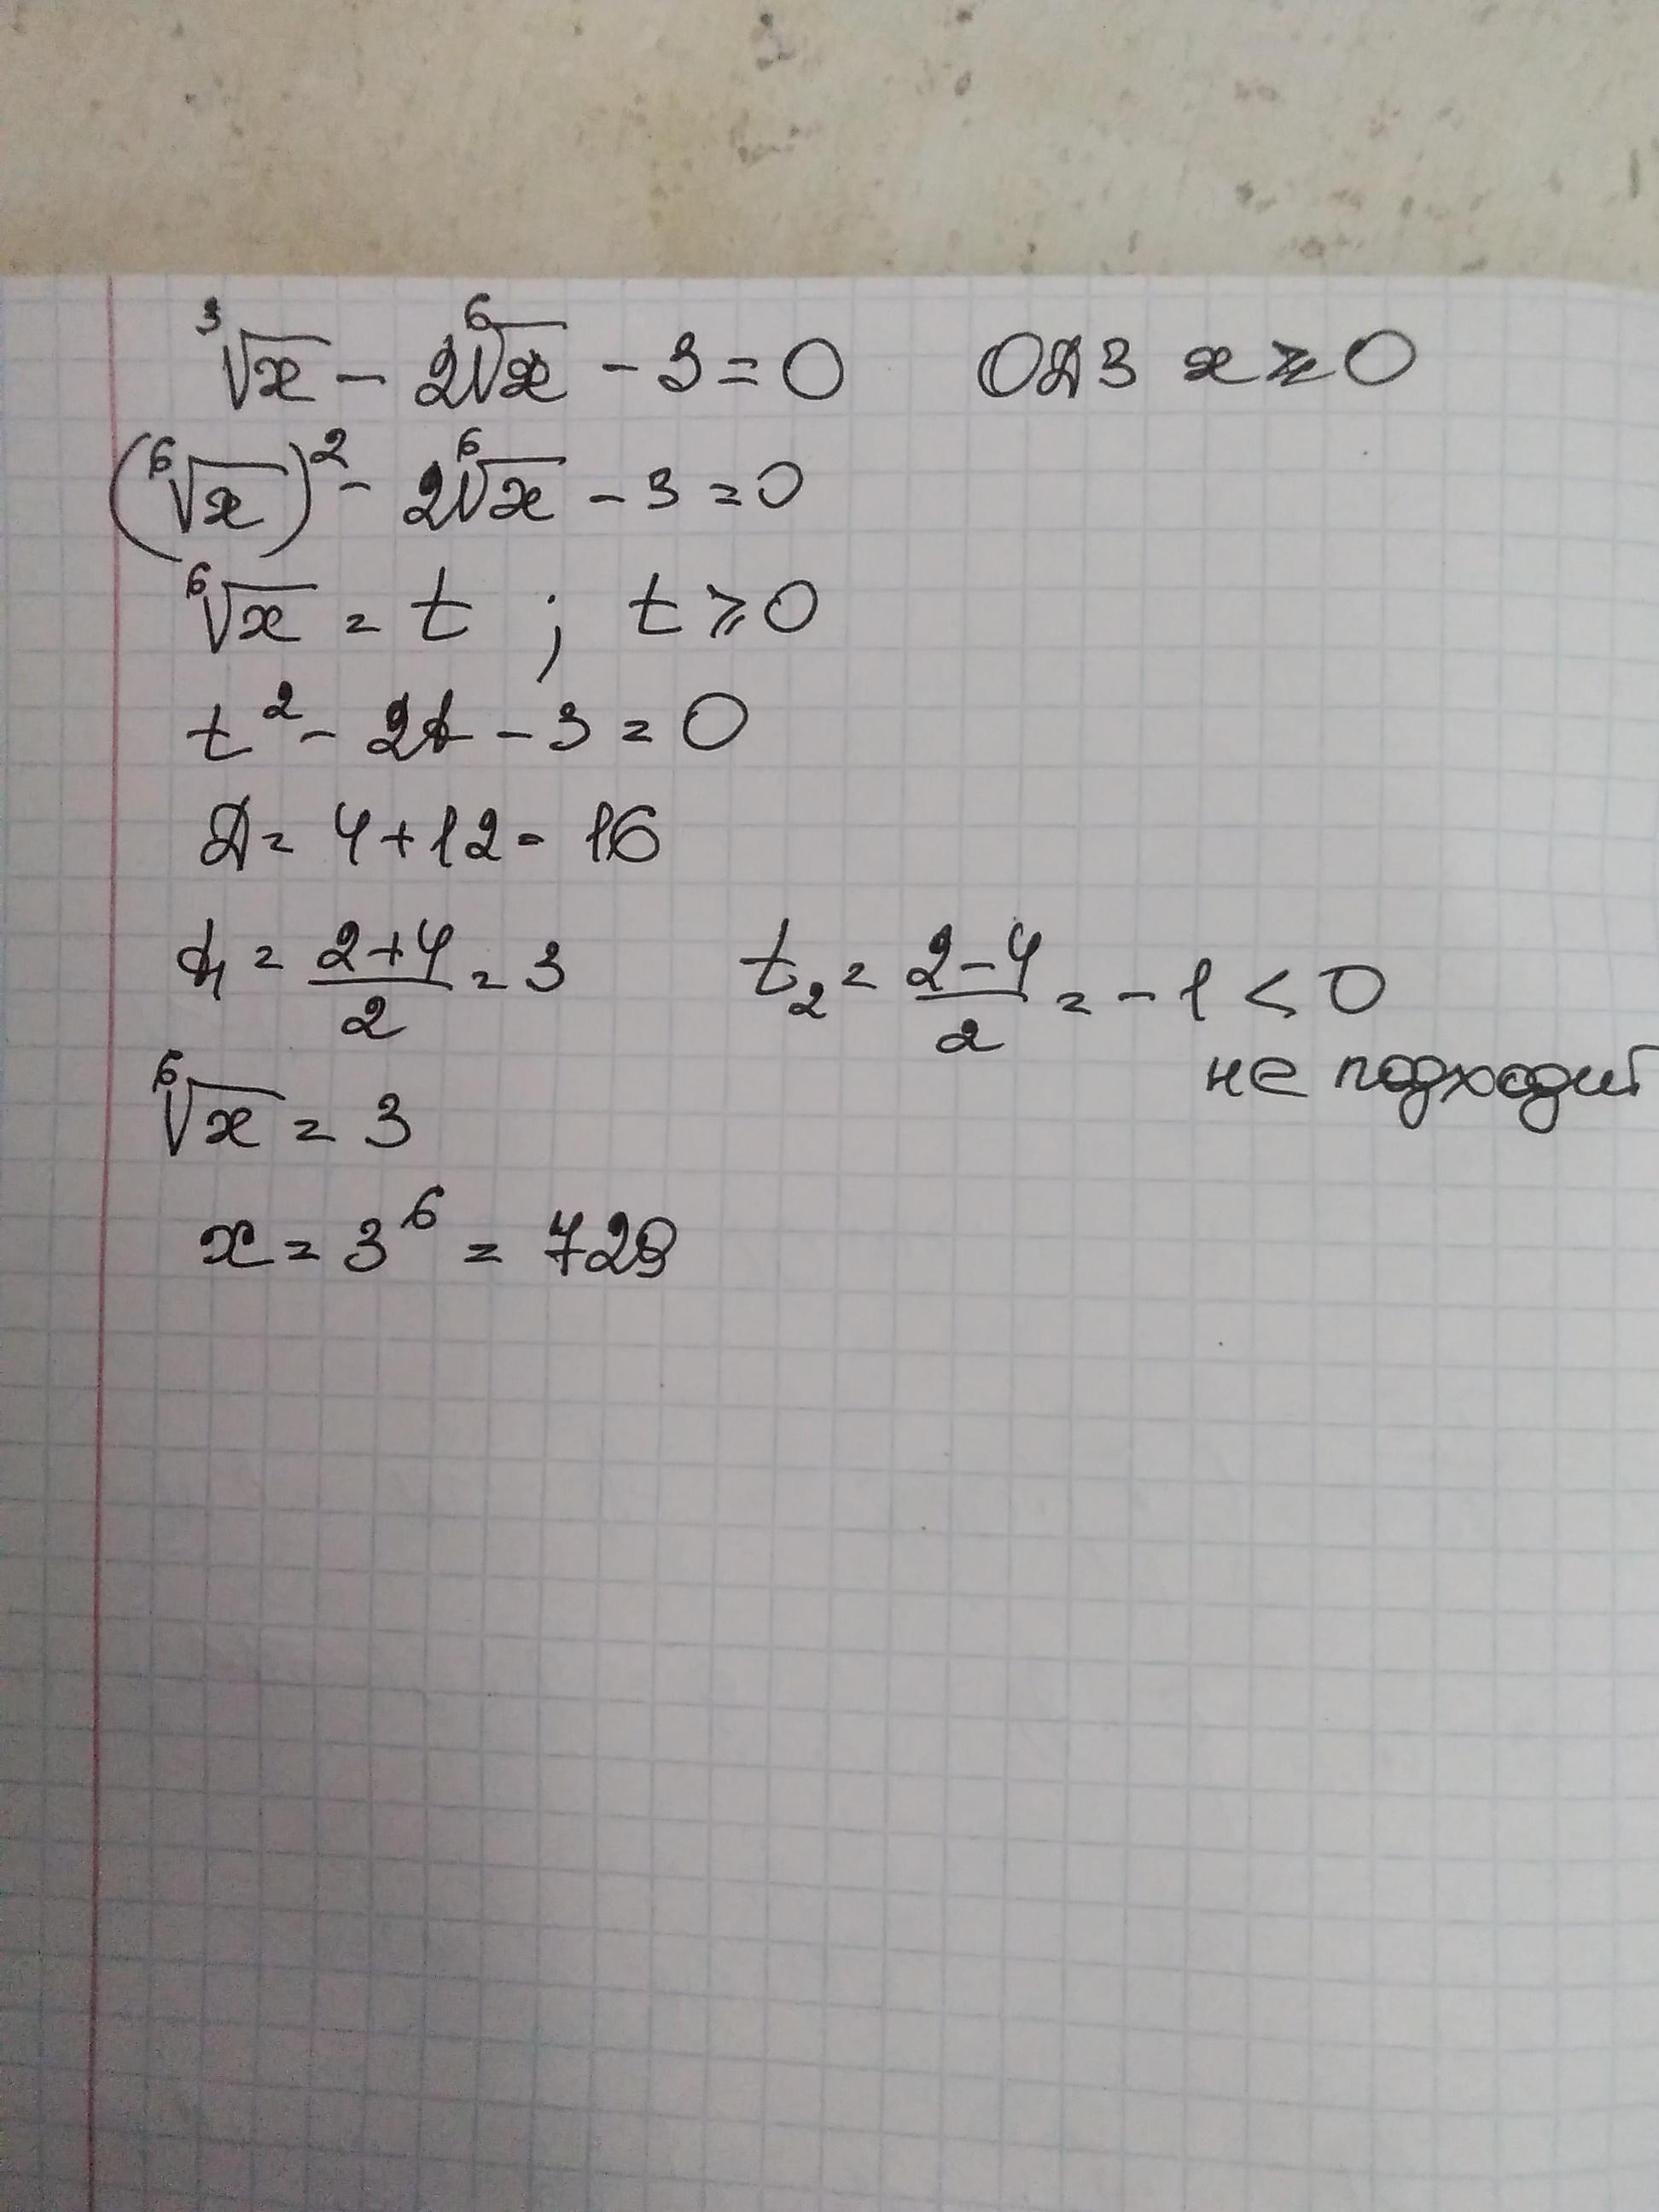 ³√x - 2⁶√x - 3 = 0 ОДЗ x ⩾ 0
(⁶√x)² - 2⁶√x - 3 = 0
⁶√x = t ; t ⩾ 0
t² - 2t - 3 = 0
Д = 4 + 12 = 16
t₁ = (2+4)/2 = 3 t₂ = (2-4)/2 = -1 < 0
не подходит
⁶√x = 3
x = 3⁶ = 729